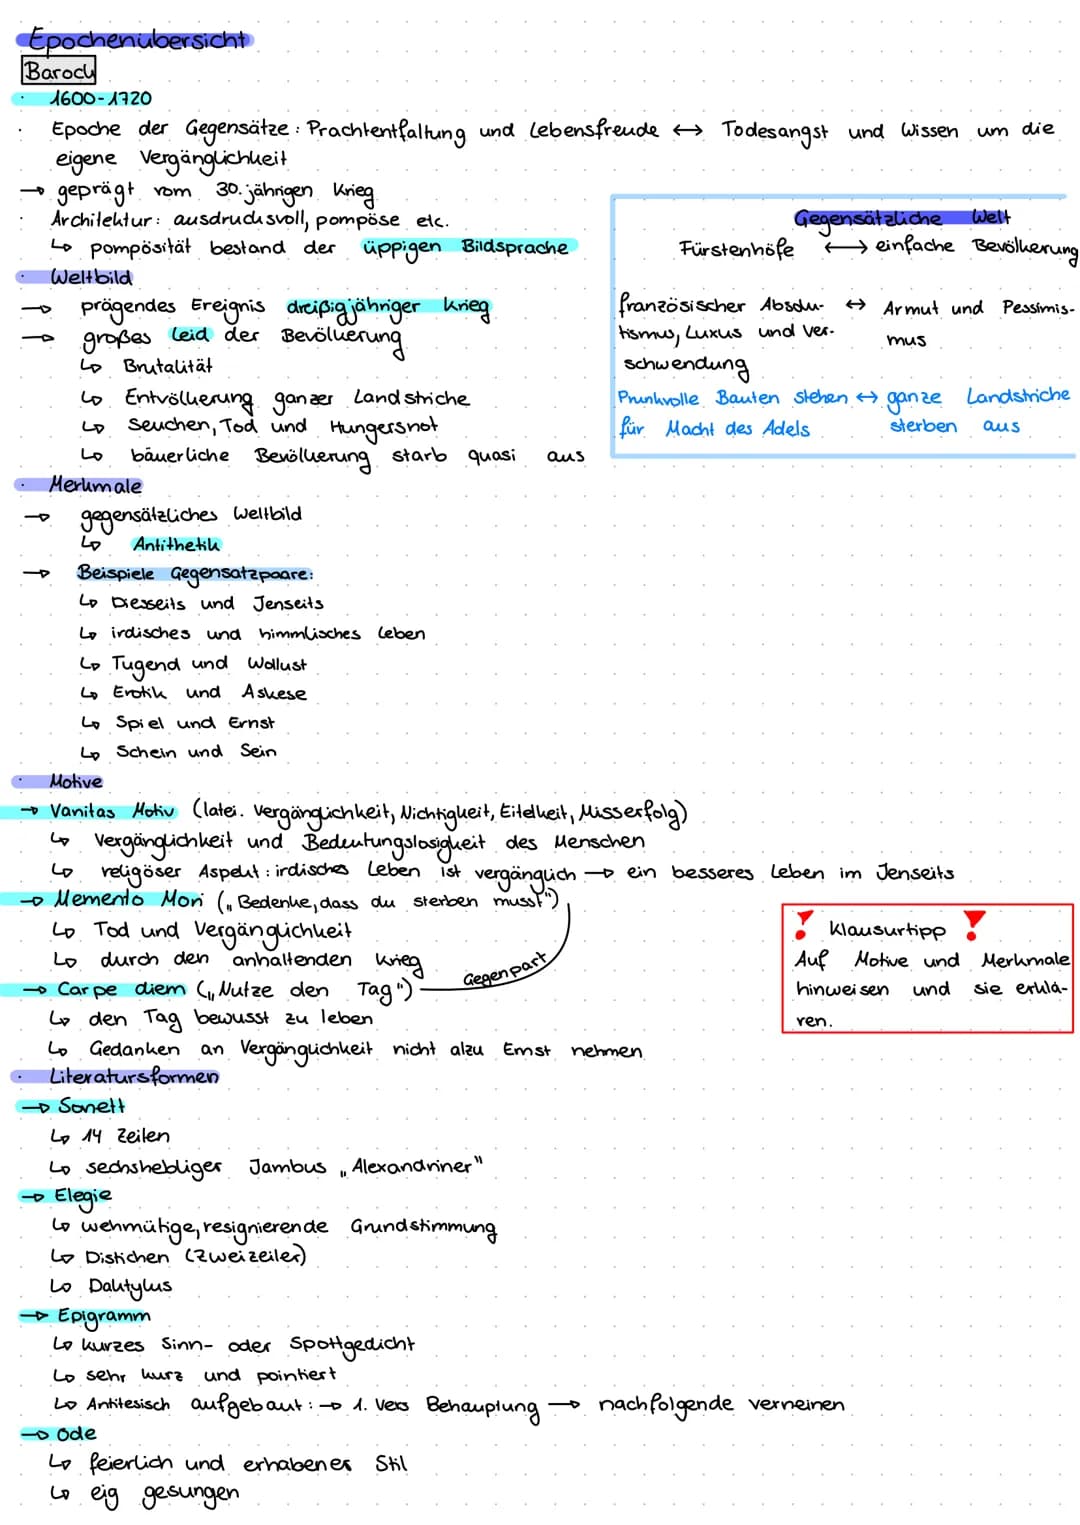 Epochenübersicht
Barock
· 1600-1720
· Epoche der Gegensätze: Prachtentfaltung und Lebensfreude ↔ Todesangst und Wissen um die
eigene Vergänglichkeit
→ geprägt vom 30.jährigen Krieg
· Architektur: ausdrucksvoll, pompöse etc.
↳ pompösität bestand der üppigen Bildsprache
· Weltbild
→ prägendes Ereignis dreißigjähriger Krieg
→ großes Leid der Bevölkerung
↳ Brutalität
↳ Entvölkerung ganzer Landstriche
↳ Seuchen, Tod und Hungersnot
↳ bäuerliche Bevölkerung starb quasi aus
Gegensätzliche Welt
Fürstenhöfe ↔ einfache Bevölkerung
französischer Absolu- ↔ Armut und Pessimis-
tismus, Luxus und Ver- mus
schwendung
Prunkvolle Bauten stehen ↔ ganze Landstriche
für Macht des Adels sterben aus
· Merkmale
→ gegensätzliches Weltbild
↳ Antithetik
→ Beispiele Gegensatzpaare:
↳ Diesseits und Jenseits
↳ irdisches und himmlisches Leben
↳ Tugend und Wollust
↳ Erotik und Askese
↳ Spiel und Ernst
↳ Schein und Sein
· Motive
→ Vanitas Motiv (latei. Vergänglichkeit, Nichtigkeit, Eitelkeit, Misserfolg)
↳ Vergänglichkeit und Bedeutungslosigkeit des Menschen
↳ religöser Aspekt: irdisches Leben ist vergänglich → ein besseres Leben im Jenseits
→ Memento Mori („Bedenke, dass du sterben musst")
↳ Tod und Vergänglichkeit
↳ durch den anhaltenden Krieg
Gegenpart
→ Carpe diem („Nutze den Tag")
↳ den Tag bewusst zu leben
↳ Gedanken an Vergänglichkeit nicht alzu Ernst nehmen
! Klausurtipp !
Auf Motive und Merkmale
hinweisen und sie erklä-
ren.
· Literatursformen
→ Sonett
↳ 14 Zeilen
↳ sechshebliger Jambus „Alexandriner"
→ Elegie
↳ wehmütige, resignierende Grundstimmung
↳ Distichen (Zweizeiler)
↳ Daktylus
→ Epigramm
↳ kurzes Sinn- oder Spottgedicht
↳ sehr kurz und pointiert
↳ Antitesisch aufgebaut: → 1. Vers Behauptung → nachfolgende verneinen
→ Ode
↳ feierlich und erhabener Stil
↳ eig gesungen